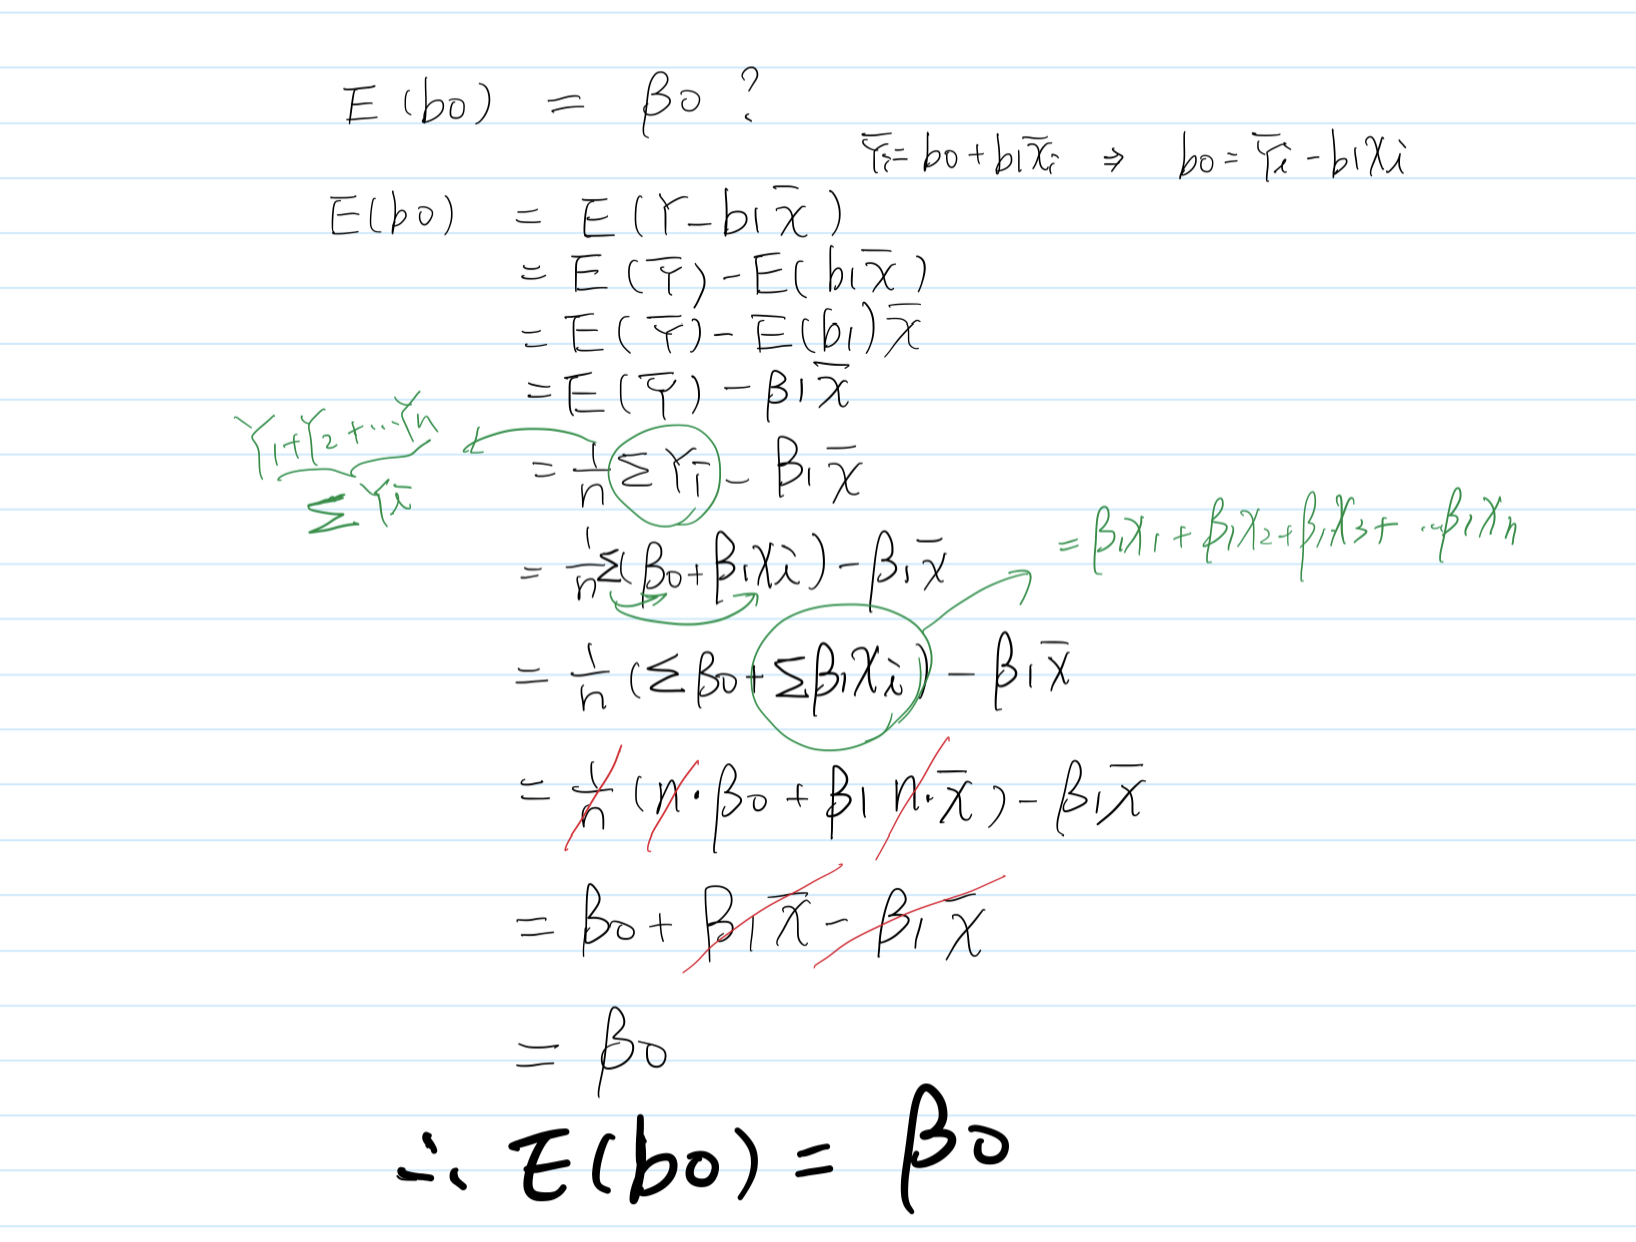 E(b0) = β0 ?
Ȳi = b0 + b1x̄i ⇒ b0 = Ȳi - b1xi
E(b0) = E(Y - b1x̄)
= E(Ȳ) - E(b1x̄)
= E(Ȳ) - E(b1)x̄
= E(Ȳ) - β1x̄
Y1+Y2+...Yn
= 1/n ΣYi - β1x̄
ΣYi
= β1x1 + β1x2 + β1x3 + ...β1xn
= 1/n Σ(β0 + β1xi) - β1x̄
= 1/n (Σβ0 + Σβ1xi) - β1x̄
= 1/n (n·β0 + β1 n·x̄) - β1x̄
= β0 + β1x̄ - β1x̄
= β0
∴ E(b0) = β0